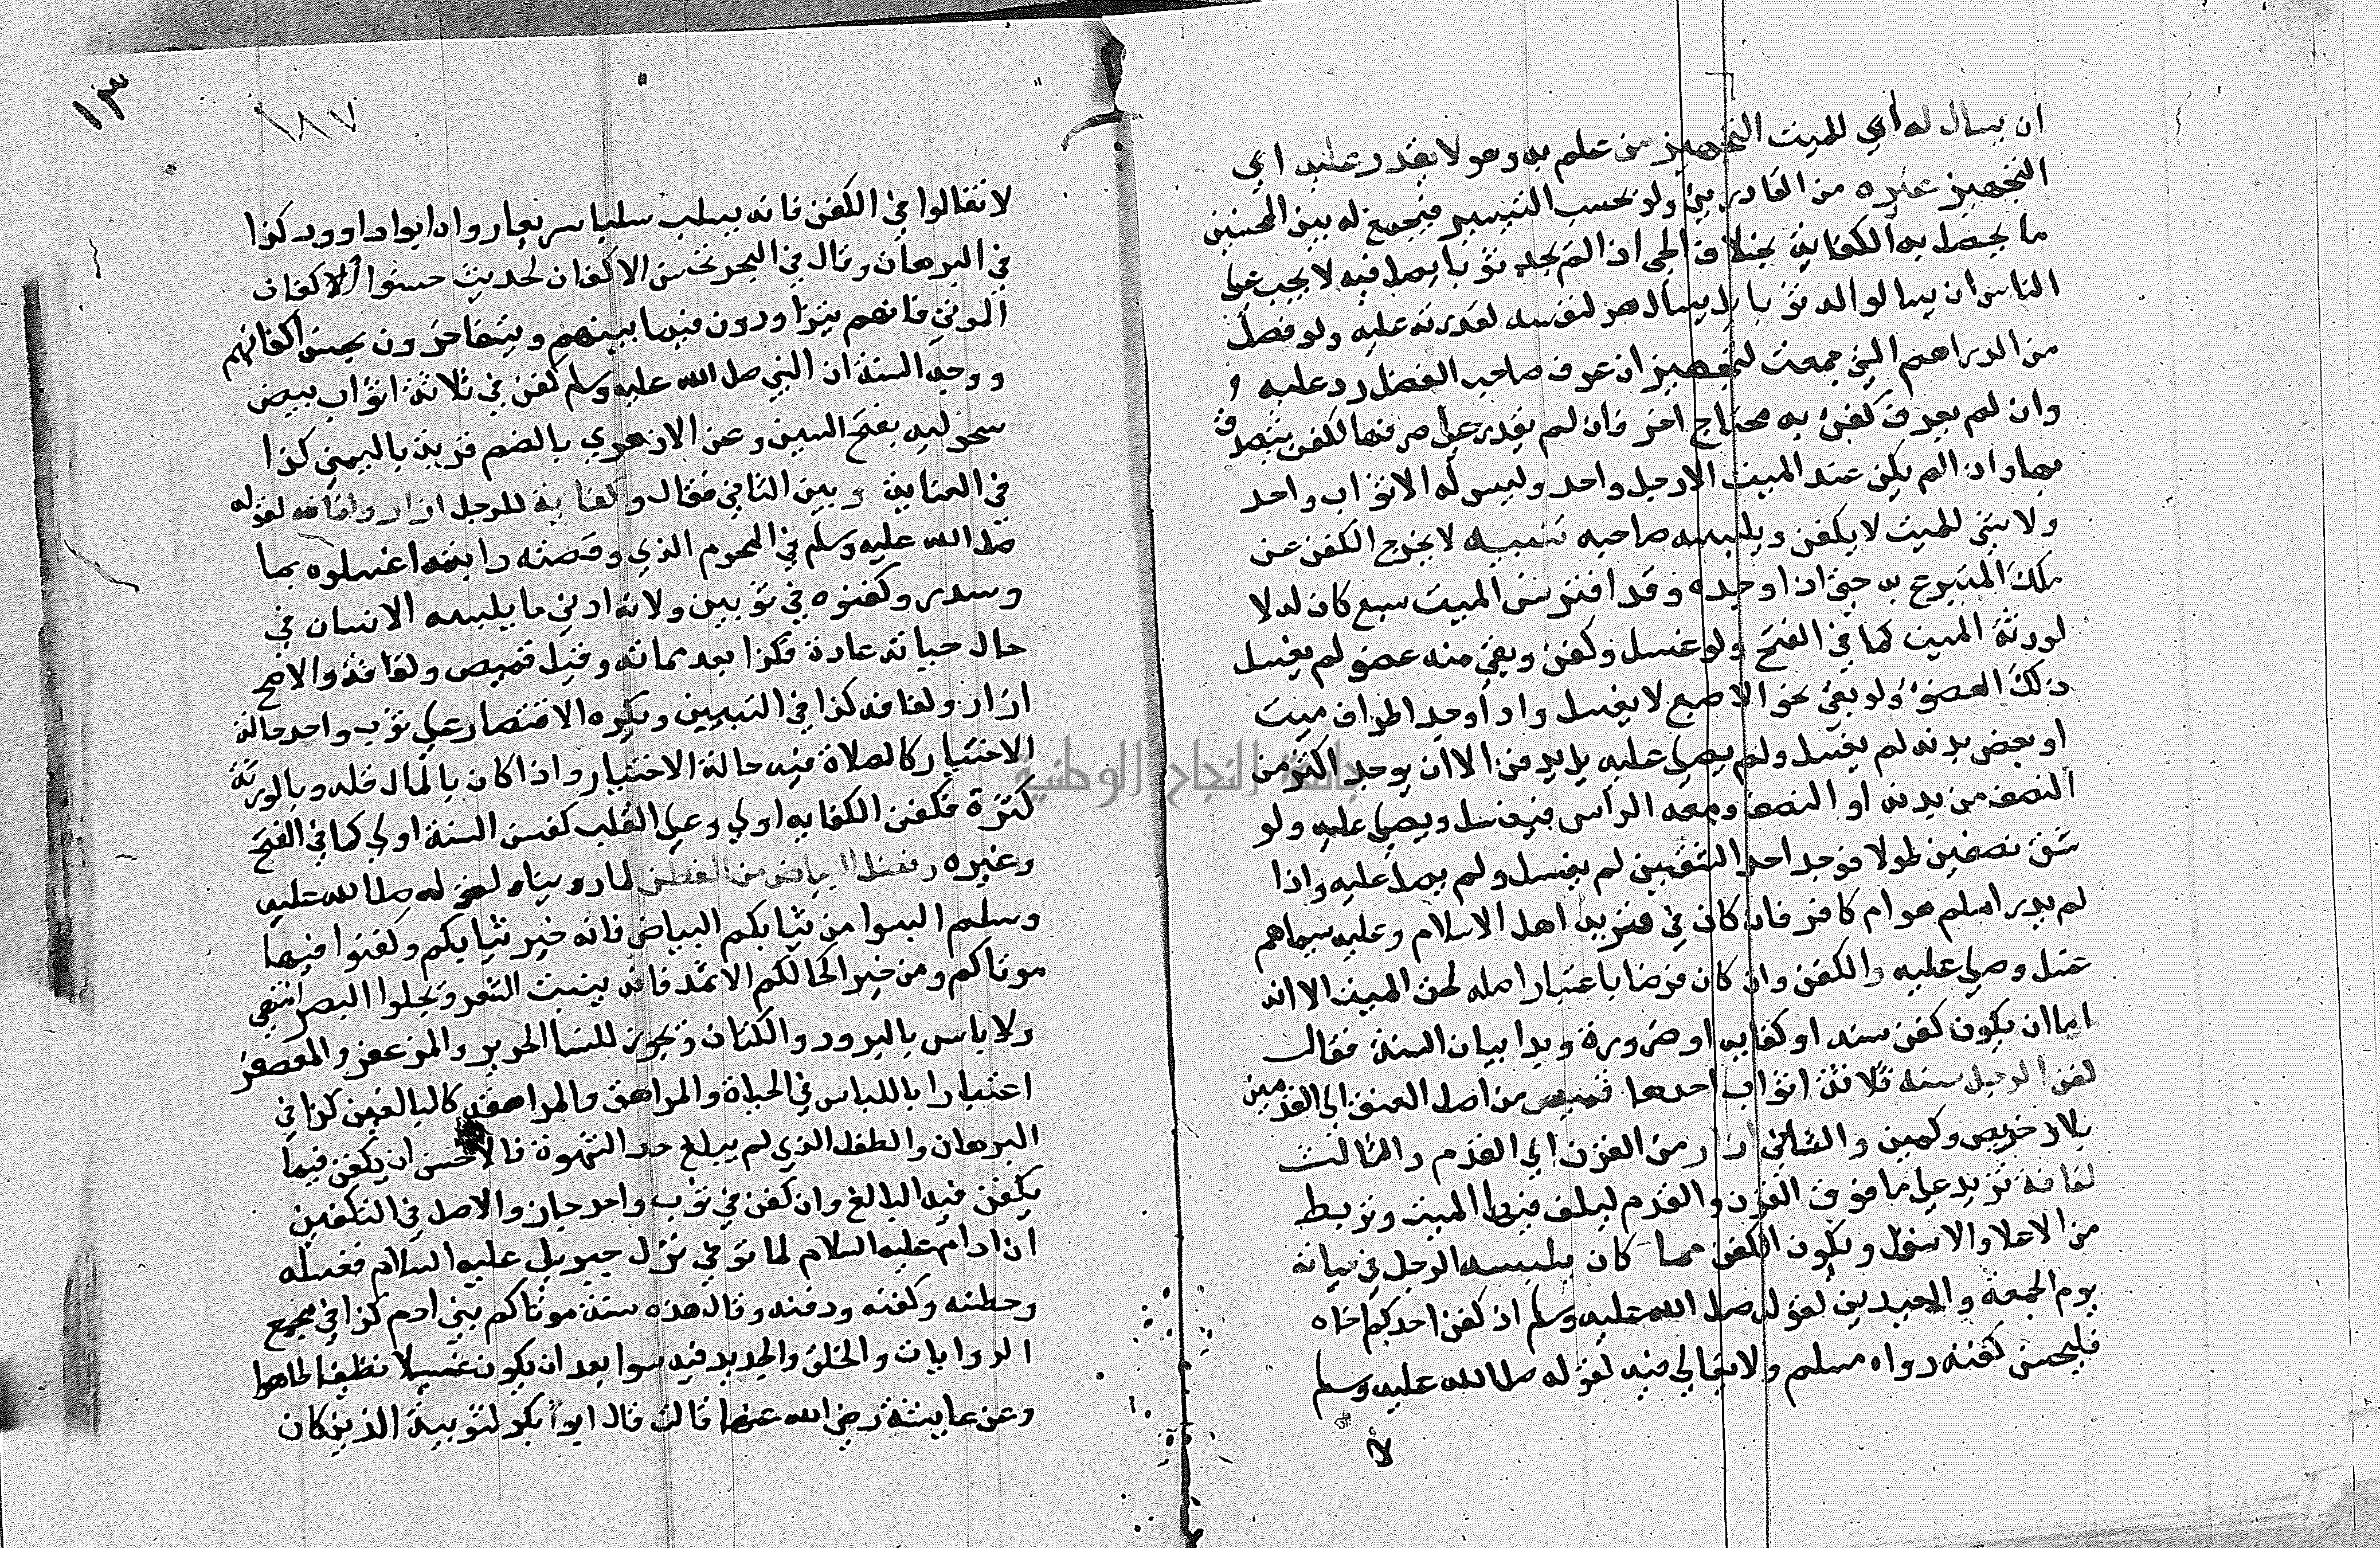 ان يسال له اي للميت التجهيز من علم به وهو لا يقدر عليه اي
التجهيز غيره من القادرين ولو بحسب التيسير فيجمع له بين المحسنين
ما يحصل به الكفاية بخلاف الحي اذا لم يجد ثوبا يصلي فيه لا يجب علي
الناس ان يسالوا له ثوبا بل يسال هو لنفسه لقدرته عليه ولو فضل
من الدراهم التي جمعت لتجهيزه ان عرف صاحب الفضل رد عليه
وان لم يعرف كفن به محتاج اخر فان لم يقدر علي صرفها لكفن يتصدق
بها وان لم يكن عند الميت الا رجل واحد وليس له الا ثواب واحد
ولا شي للميت لا يكفن ويلبسه صاحبه تنبيه لا يخرج الكفن عن
ملك المتبرع به حتي اذا وجده وقد افترس الميت سبع كان له لا
لورثة الميت كما في الفتح ولو غسل وكفن وبقي منه عضو لم يغسل
ذلك العضو ولو بقي نحو الاصبع لا يغسل واذا وجد اطراف ميت
او بعض بدنه لم يغسل ولم يصلي عليه بل يدفن الا ان يوجد اكثر من
النصف من بدنه او النصف ومعه الراس فيغسل ويصلي عليه ولو
شق نصفين طولا فوجد احد الشقين لم يغسل ولم يصل عليه واذا
لم يدر امسلم هو ام كافر فان كان في قرية اهل الاسلام وعليه سيماهم
غسل وصلي عليه والكفن وان كان فرضا باعتبار اصله لحق الميت الا انه
اما ان يكون كفن سنه او كفايه او ضرورة وبدا ببيان السنة فقال
كفن الرجل سنه ثلاثة اثواب احدها قميص من اصل العنق الي القدمين
بلا دخريص وكمين والثاني ازار من القرن الي القدم والثالث
لفافة تزيد علي ما فوق القرن والقدم ليلف فيها الميت وتربط
من الاعلا والاسفل ويكون الكفن مما كان يلبسه الرجل في حياته
يوم الجمعة والعيدين لقوله صلي الله عليه وسلم اذ كفن احدكم اخاه
فليحسن كفنه رواه مسلم ولا يغالي فيه لقوله صلي الله عليه وسلم
لا
١٣
١٨٧
لا تغالوا في الكفن فانه يسلب سلبا سريعا رواه ابوا داوود كذا
في البرهان وقال في البحر تحسن الاكفان لحديث حسنوا الاكفان
الموتي فانهم يتزاورون فيما بينهم ويتفاخرون بحسن اكفانهم
ووجه السنة ان النبي صلي الله عليه وسلم كفن في ثلاثة اثواب بيض
سحوليه بفتح السين وعن الازهري بالضم قرية باليمن كذا
في العناية وبين الثاني فقال وكفاية للرجل ازار ولفافه لقوله
صلي الله عليه وسلم في المحرم الذي وقصته دابته اغسلوه بما
وسدر وكفنوه في ثوبين ولانه ادني ما يلبسه الانسان في
حال حياته عادة فكذا بعد مماته وقيل قميص ولفافة والاصح
ازار ولفافه كذا في التبيين ويكره الاقتصار علي ثوب واحد حالة
الاختيار كالصلاة فيه حالة الاختيار واذا كان بالمال قله وبالورثة
كثرة فكفن الكفايه اولي وعلي القلب كفن السنة اولي كما في الفتح
وغيره وفضل البياض من القطن لما رويناه لقوله صلي الله عليه
وسلم البسوا من ثيابكم البياض فانه خير ثيابكم وكفنوا فيها
موتاكم ومن خير اكحالكم الاثمد فانه ينبت الشعر ويجلوا البصر انتهي
ولا باس بالبرود والكتان ويجوز للنسا الحرير والمزعفر والمعصفر
اعتبارا باللباس في الحياة والمراهق والمراهقه كالبالغين كذا في
البرهان والطفل الذي لم يبلغ حد الشهوة فالاحسن ان يكفن فيما
يكفن فيه البالغ وان كفن في ثوب واحد جاز والاصل في التكفين
ان ادام عليه السلام لما توفي نزل جبريل عليه السلام فغسله
وحطنه وكفنه ودفنه وقال هذه سنة موتاكم بني ادم كذا في مجمع
الروايات والخلق والجديد فيه سوا بعد ان يكون غسيلا نظيفا طاهرا
وعن عايشة رضي الله عنها قالت قال ابوا بكر لثوبيه الذين كان
جامعة النجاح الوطنية